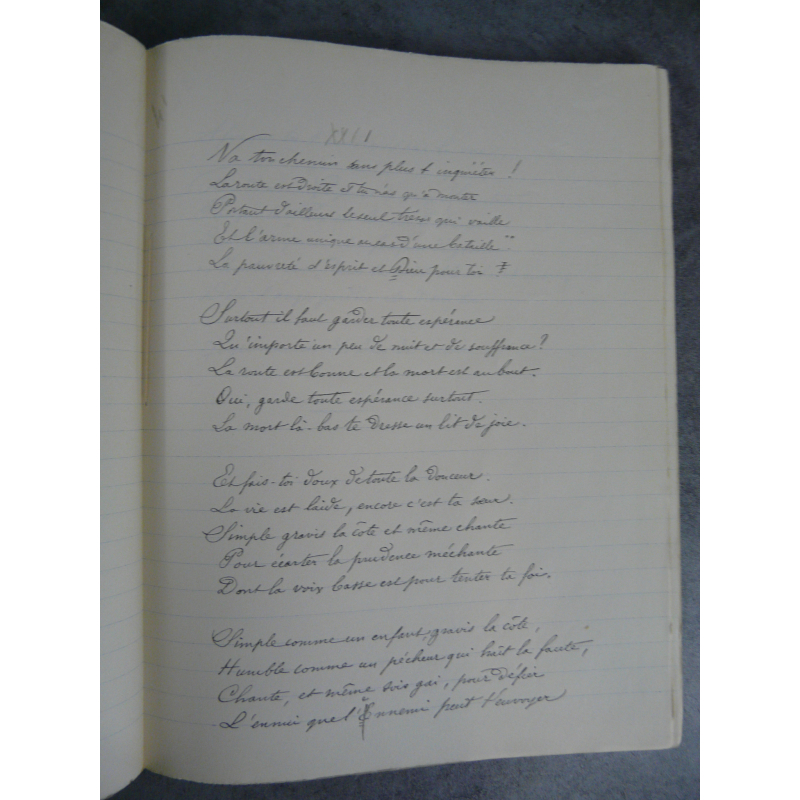 XXII
Va ton chemin sans plus t'inquiéter !
La route est droite et tu n'as qu'à monter
Portant d'ailleurs le seul trésor qui vaille
Et l'arme unique au cas d'une bataille
La pauvreté d'esprit et Dieu pour toi !
Surtout il faut garder toute espérance
Qu'importe un peu de nuit et de souffrance ?
La route est bonne et la mort est au bout.
Oui, garde toute espérance surtout.
La mort là-bas te dresse un lit de joie.
Et fais-toi doux de toute la douceur.
La vie est laide, encore c'est ta sœur.
Simple gravis la côte et même chante
Pour écarter la prudence méchante
Dont la voix basse est pour tenter ta foi.
Simple comme un enfant, gravis la côte,
Humble comme un pécheur qui hait la faute,
Chante, et même sois gai, pour défier
L'ennui que l'Ennemi peut t'envoyer